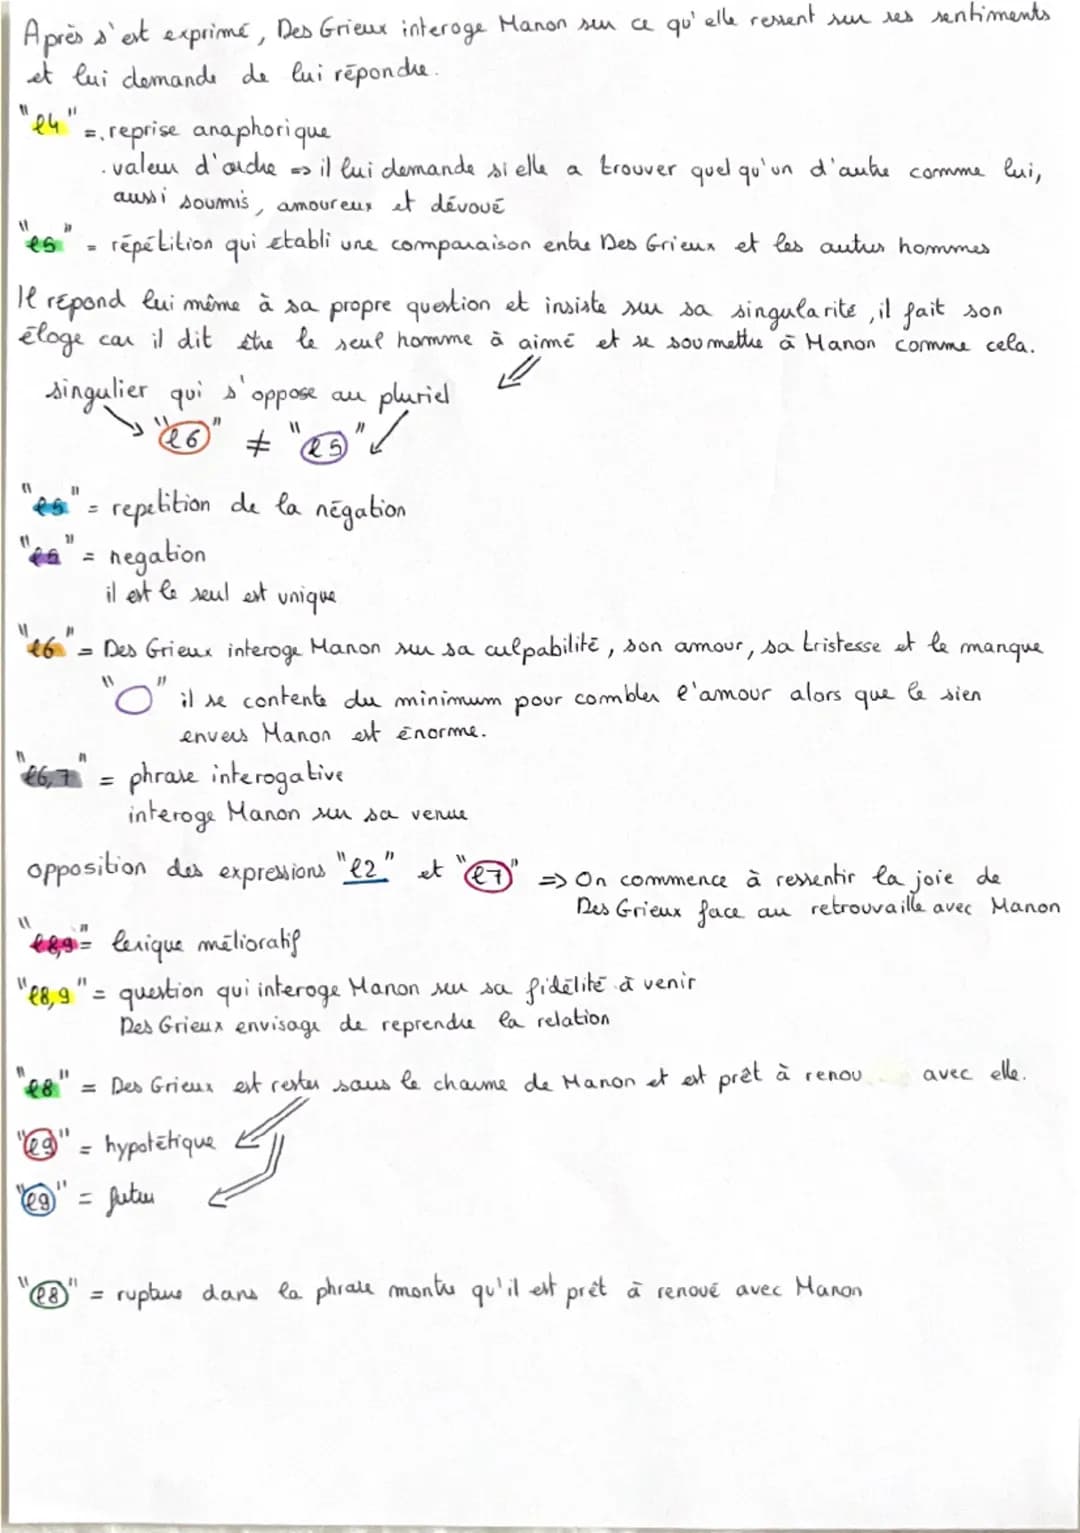 Après s'est exprimé, Des Grieux interoge Manon sur ce qu'elle ressent sur ses sentiments
et lui demande de lui répondre.
"l4" = . reprise anaphorique
. valeur d'ordre => il lui demande si elle a trouver quelqu'un d'autre comme lui,
aussi soumis, amoureux et dévoué
"l5" = répétition qui établi une comparaison entre Des Grieux et les autres hommes
Il répond lui même à sa propre question et insiste sur sa singularité, il fait son
éloge car il dit être le seul homme à aimé et se soumettre à Manon comme cela.
singulier qui s'oppose au pluriel
"l6" ≠ "l5"
"l5" = repetition de la négation
"l5" = negation
il est le seul est unique
"l6" = Des Grieux interoge Manon sur sa culpabilité, son amour, sa tristesse et le manque
" " il se contente du minimum pour combler l'amour alors que le sien
envers Manon est énorme.
"l6,7" = phrase interogative
interoge Manon sur sa venue
opposition des expressions "l2" et "l7" => On commence à ressentir la joie de
Des Grieux face au retrouvaille avec Manon
"l8,9" = lexique mélioratif
"l8,9" = question qui interoge Manon sur sa fidélité à venir
Des Grieux envisage de reprendre la relation
"l8" = Des Grieux est rester sous le charme de Manon et est prêt à renou avec elle.
"l9" = hypotétique
"l9" = futur
"l8" = rupture dans la phrase montre qu'il est prêt à renoué avec Manon